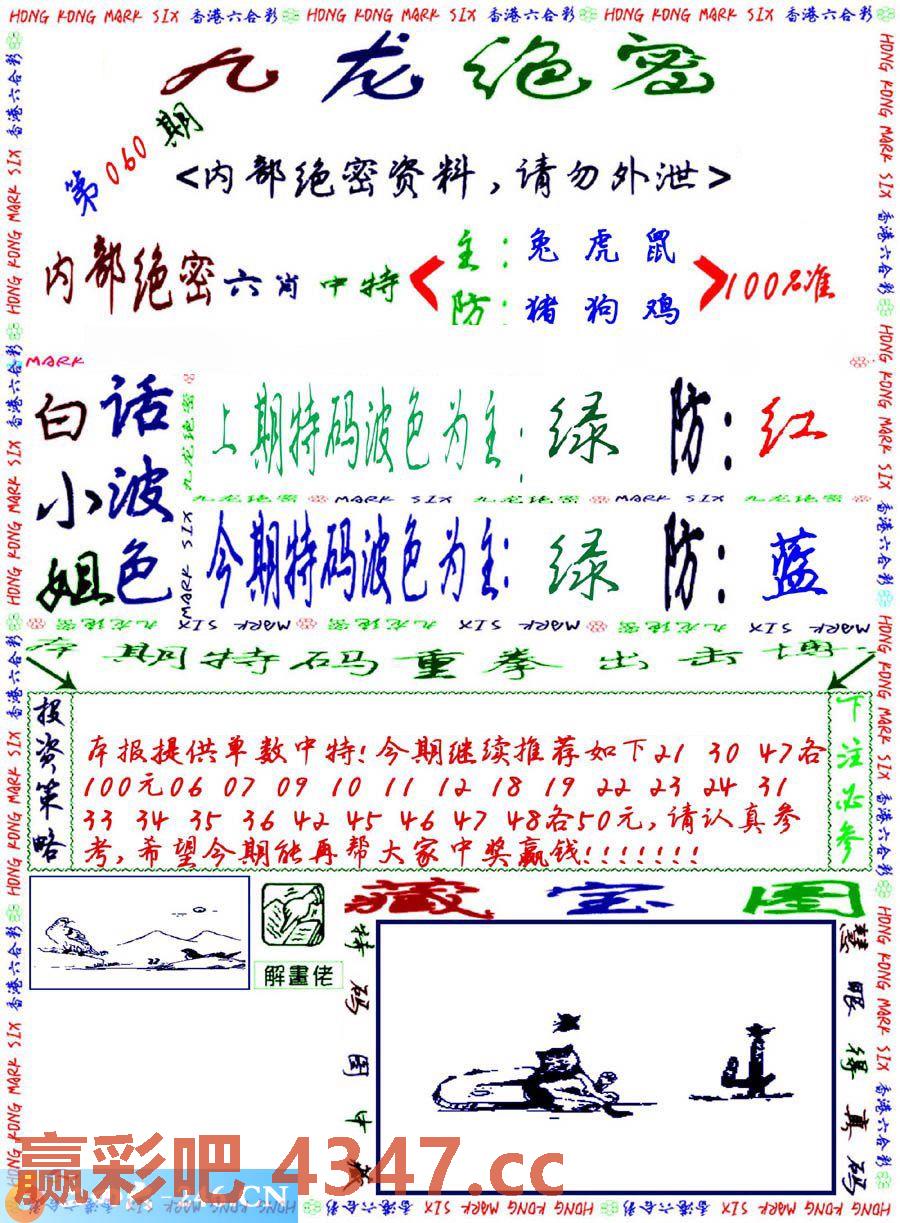 HONG KONG MARK SIX 香港六合彩 HONG KONG MARK SIX 香港六合彩 HONG KONG MARK SIX 香港六合彩
九龙绝密
第060期
<内部绝密资料,请勿外泄>
内部绝密六肖中特
主:兔虎鼠
防:猪狗鸡
100%准
MARK
白话小波姐色
上期特码波色为主:绿 防:红
九龙绝密 MARK SIX 九龙绝密 MARK SIX 九龙绝密
今期特码波色为主:绿 防:蓝
MARK SIX 九龙绝密 MARK SIX 九龙绝密 SIX MARK 九龙绝密 SIX MARK
期特码重拳出击博
投资策略
本报提供单数中特!今期继续推荐如下21 30 47各
100元06 07 09 10 11 12 18 19 22 23 24 31
33 34 35 36 42 45 46 47 48各50元,请认真参
考,希望今期能再帮大家中奖赢钱!!!!!!!
下注必参
解畫佬
藏宝图
特码图中
慧眼得真码
赢彩吧 4347.cc
246.CN